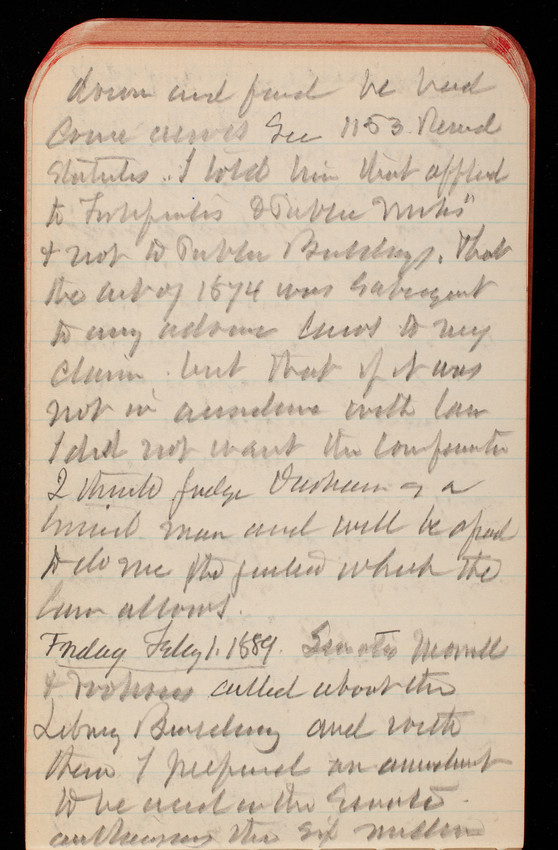 down and find he had
Come across Sec 1153 Revised
Statutes. I told him that applied
to Fortifications & Public Works"
& not to Public Buildings. That
the act of 1874 was subsequent
to any adverse laws to my
claim. but that if it was
not in accordance with law
I did not want the compensation
I think Judge Durham is a
timid man and will be afraid
to do me the justice which the
law allows.
Friday Feby 1. 1889. Senator Morrill
& Voorhees called about the
Library Building and with
them I prepared an amendment
to be used in the Senate
authorising the six million